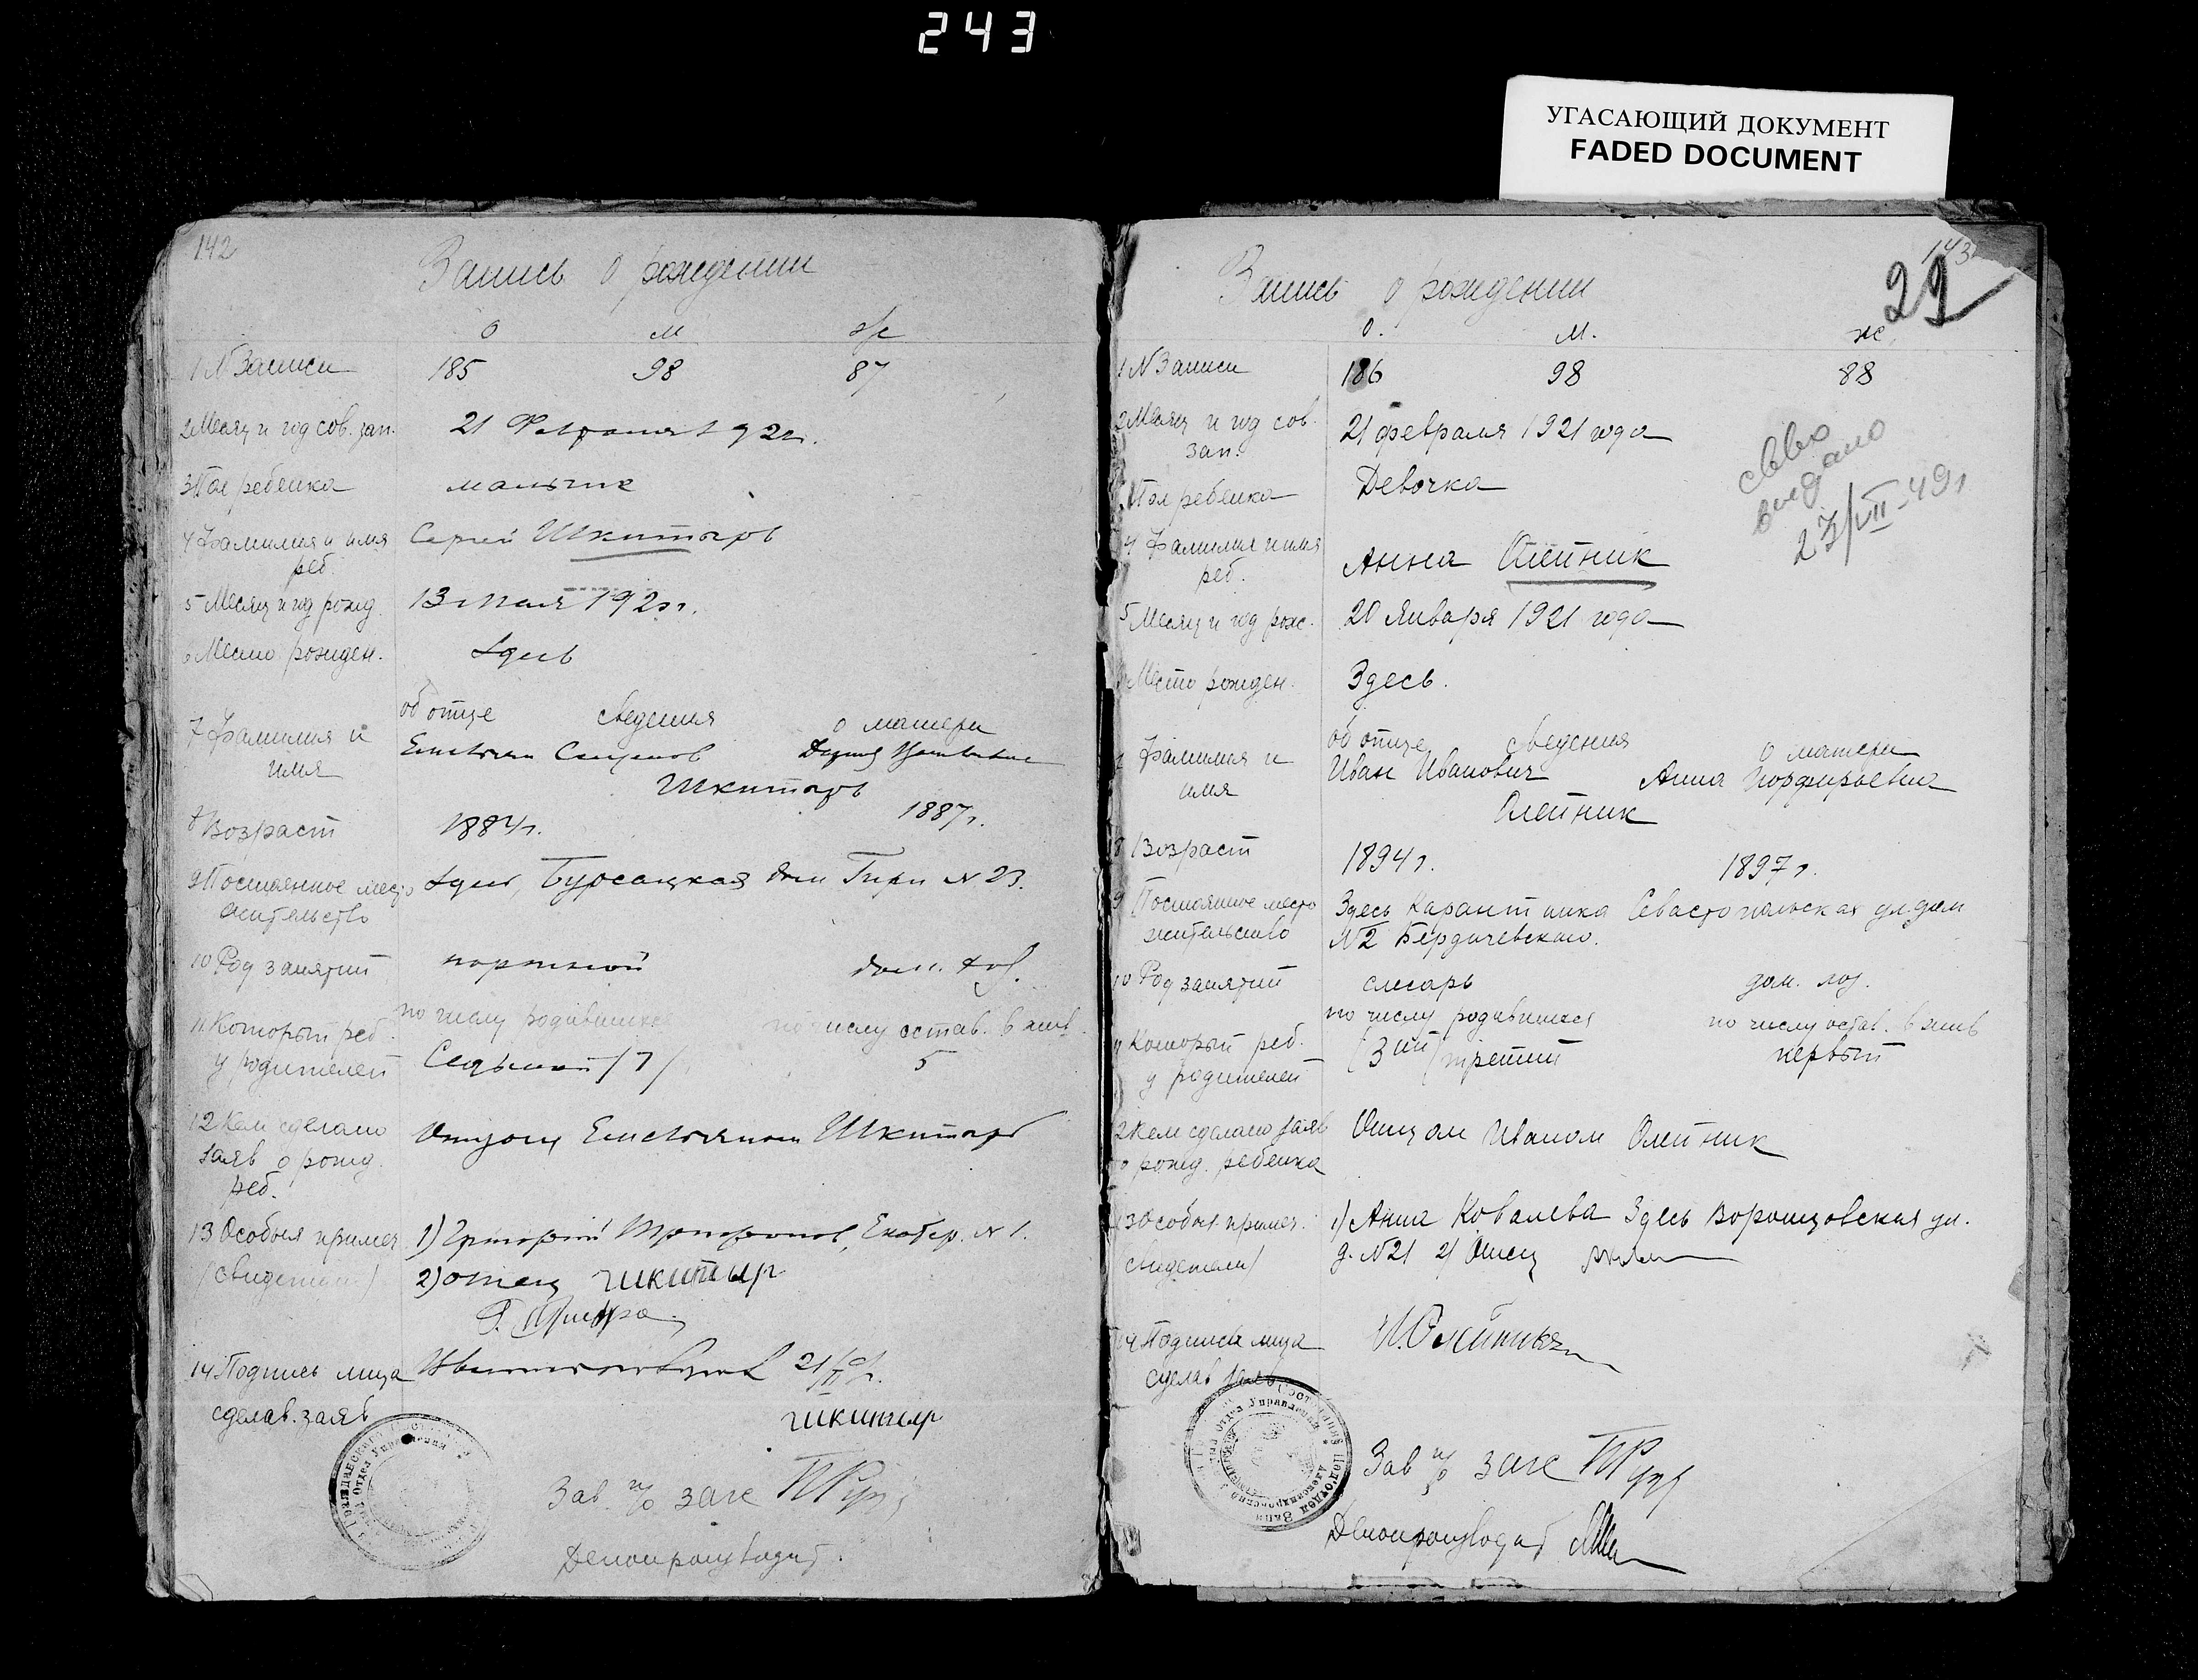 243
УГАСАЮЩИЙ ДОКУМЕНТ
FADED DOCUMENT
142
Запись о рождении
о м ж
1 N Записи 185 98 87
2 Месяц и год сов. зап. 21 Февраля 1921г.
3 Пол ребенка мальчик
4 Фамилия и имя реб. Сергей Шкитырь
5 Месяц и год рожд. 13
6 Место рожден. Здесь
об отце сведения о матери
7 Фамилия и имя
Шкитырь
8 Возраст 1884г. 1887г.
9 Постоянное место жительство Здесь, Бурсацкая дом N 23.
10 Род занятий портной дом. хоз.
по числу родившихся по числу остав. в жив.
11 Который реб. у родителей Седьмой /7/ 5
12 Кем сделано заяв о рожд. реб. Отцом Шкитырь
13 Особыя примеч. /свидетели/ 1) Екатер. N 1.
2) отец Шкитыр
14 Подпись лица сделав. заяв 21/II
Шкитыр
Зав. п/о загс
Делопроизводит.
143
29
Запись о рождении
о. м. ж
1 N Записи 186 98 88
2 Месяц и год сов. зап. 21 февраля 1921 года
3 Пол ребенка Девочка
св-во
выдано
23/VII-49г
4 Фамилия и имя реб. Анна Олейник
5 Месяц и год рож. 20 Января 1921 года
6 Место рожден. Здесь.
об отце сведения о матери
7 Фамилия и имя Иван Иванович Анна Порфирьевна
Олейник
8 Возраст 1894г. 1897г.
9 Постоянное место жительство Здесь Карантинка Севастопольская ул. дом
N2 Бердичевского.
10 Род занятий слесарь дом. хоз.
по числу родившихся по числу остав. в жив
11 Который реб. у родителей (3ий) третий первый
12 Кем сделано заяв о рожд. ребенка Отцом Иваном Олейник
13 Особыя примеч. свидетели/ 1) Анна Ковалева Здесь Воронцовская ул.
д. N21 2) Отец
14 Подпись лица сделав заяв И. Олейник
Зав п/о загс
Делопроизводит